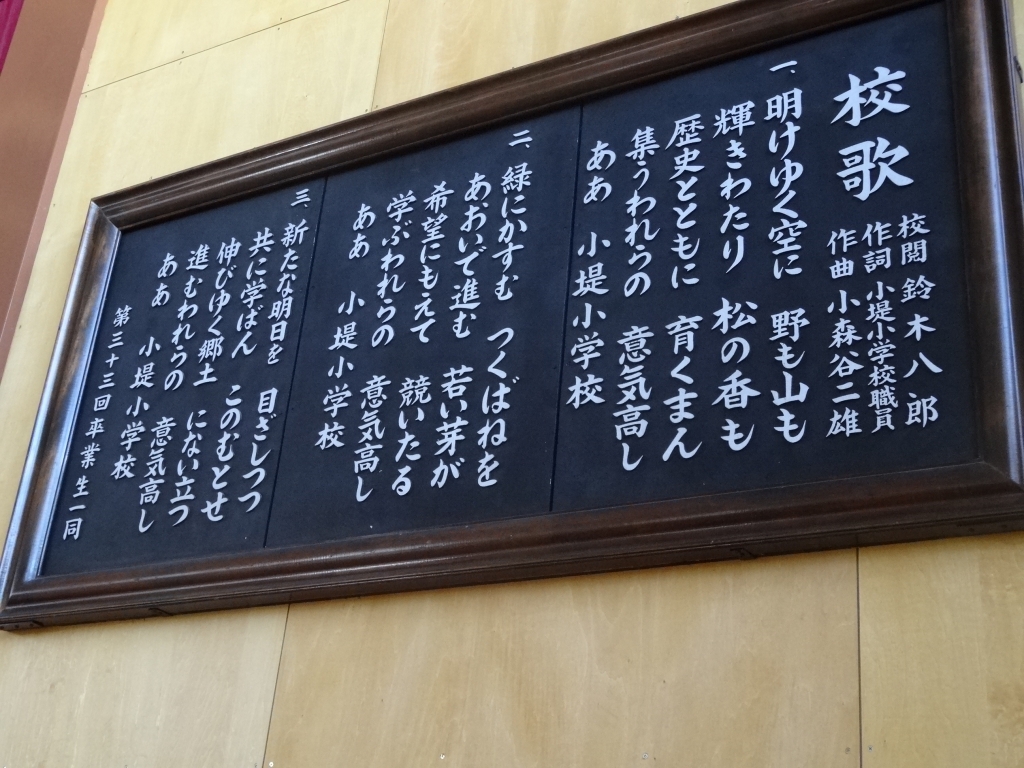 校歌
校閲 鈴木八郎
作詞 小堤小学校職員
作曲 小森谷二雄
一、明けゆく空に 野も山も
輝きわたり 松の香も
歴史とともに 育くまん
集うわれらの 意気高し
ああ 小堤小学校
二、緑にかすむ つくばねを
あおいで進む 若い芽が
希望にもえて 競いたる
学ぶわれらの 意気高し
ああ 小堤小学校
三、新たな明日を 目ざしつつ
共に学ばん このむとせ
伸びゆく郷土 にない立つ
進むわれらの 意気高し
ああ 小堤小学校
第三十三回卒業生一同